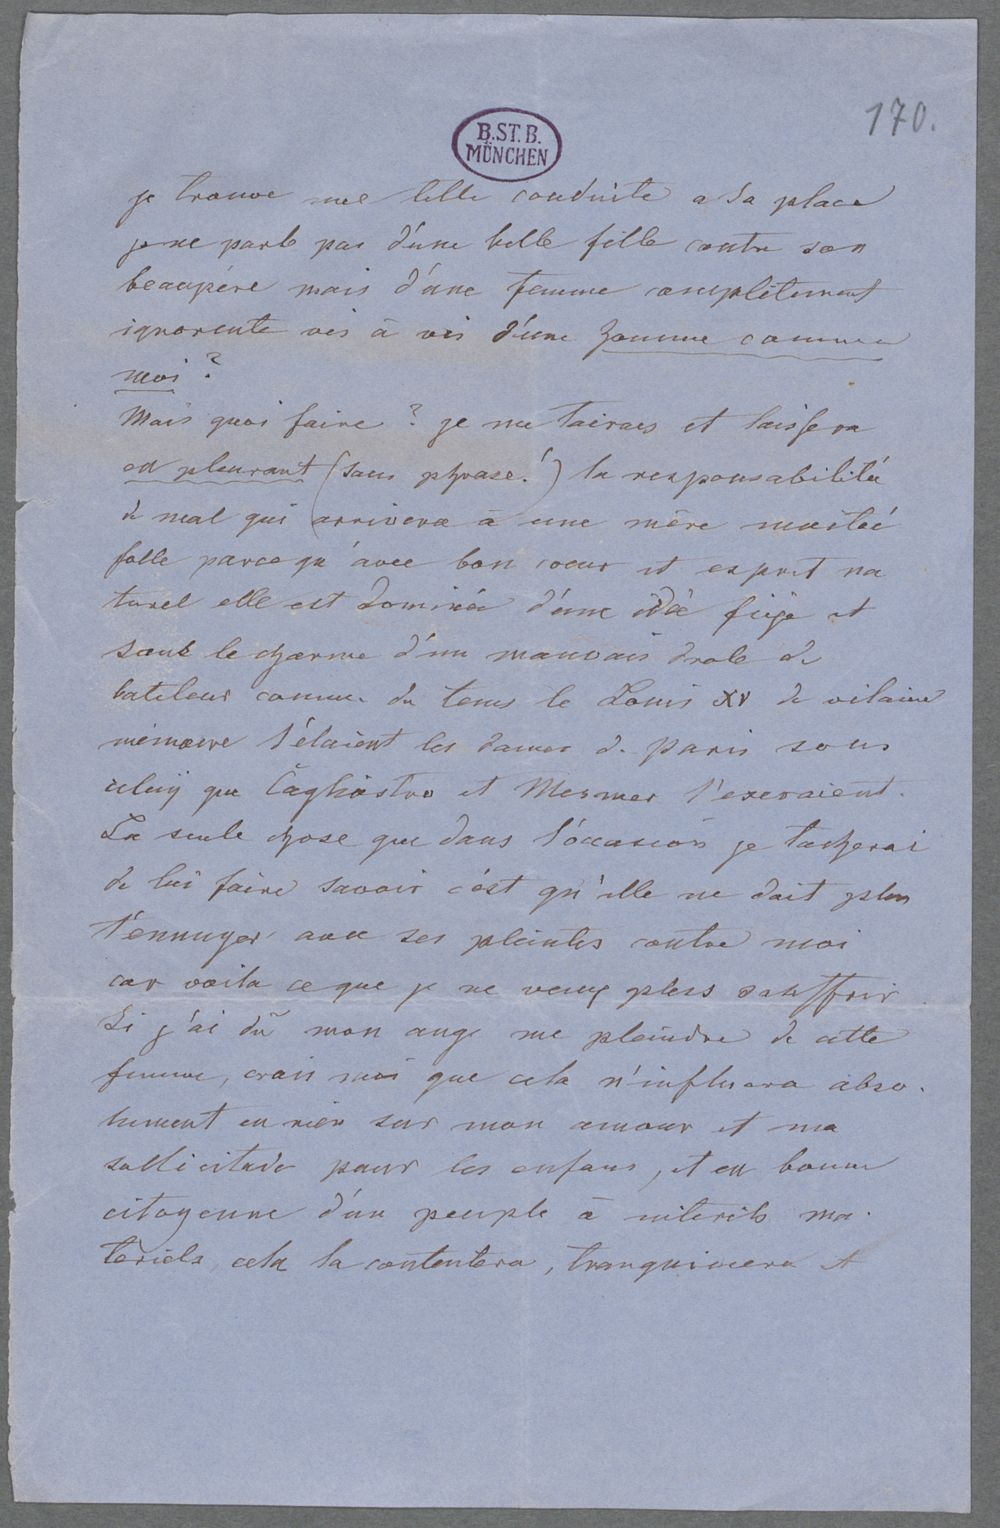 170.
B.ST.B.
MÜNCHEN
je trouve une telle conduite a sa place
je ne parle pas d'une belle fille contre son
beaupére mais d'une femme complètement
ignorente vis à vis d'une homme comme
moi?
Mais quoi faire? je me tairaes et laissera
en pleurant (sans phrase!) la responsabilitée
de mal qui arrivera à une mère
folle parce qu'avec bon coeur et esprit na
turel elle est dominée d'une idée fixe et
sous le charme d'un mauvais drole de
bateleur comme du tems le Louis XV de vilaine
mémoire l'étaient les dames de Paris sous
celuy que Cagliostro et Mesmer l'exeraient.
La seule chose que dans l'occasion je tacherai
de lui faire savoir c'est qu'elle ne doit plus
t'ennuyer avec ses pleintes contre moi
car voila ce que je ne veux plus souffrir
Si j'ai dû mon ange me plaindre de cette
femme, crois moi que cela n'influera abso-
lument en rien sur mon amour et ma
sollicitude pour les enfans, et en bonne
citoyenne d'un peuple à interets ma-
teriels, cela la contentera, et